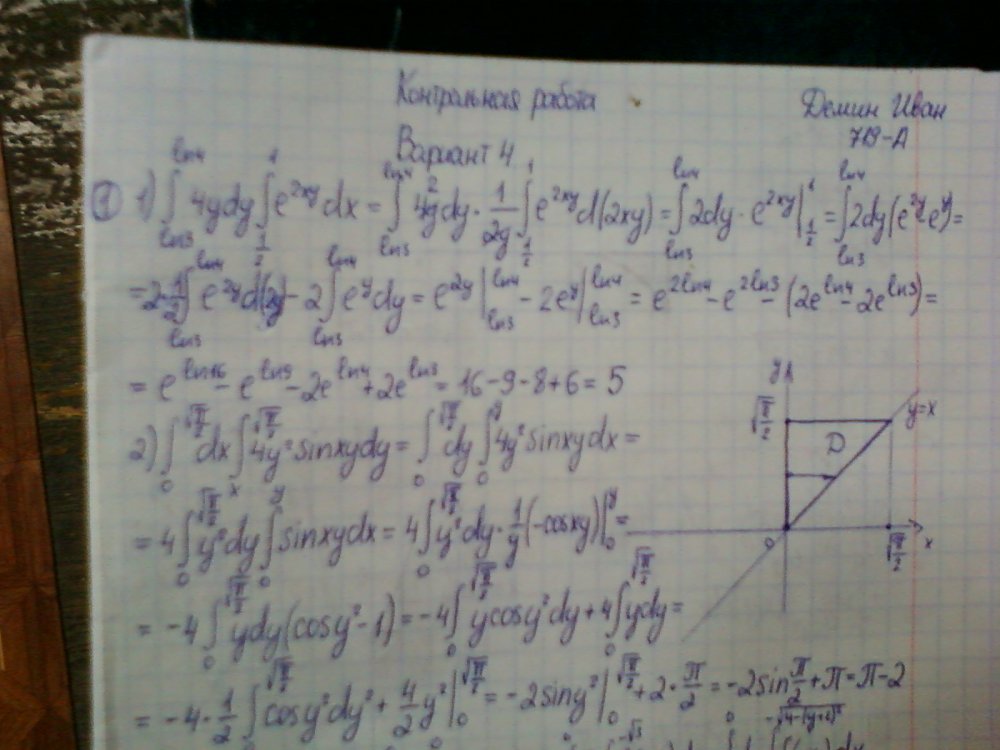 Контрольная работа
Демин Иван
719-А
Вариант 4.
① 1) ∫_{ln3}^{ln4} 4ydy ∫_{1/2}^{1} e^{2xy} dx = ∫_{ln3}^{ln4} 4y dy · 1/2y ∫_{1/2}^{1} e^{2xy} d(2xy) = ∫_{ln3}^{ln4} 2dy · e^{2xy} |_{1/2}^{1} = ∫_{ln3}^{ln4} 2dy (e^{2y} - e^{y}) =
= 2·1/2 ∫_{ln3}^{ln4} e^{2y} d(2y) - 2 ∫_{ln3}^{ln4} e^{y} dy = e^{2y} |_{ln3}^{ln4} - 2e^{y} |_{ln3}^{ln4} = e^{2ln4} - e^{2ln3} - (2e^{ln4} - 2e^{ln3}) =
= e^{ln16} - e^{ln9} - 2e^{ln4} + 2e^{ln3} = 16 - 9 - 8 + 6 = 5
2) ∫_{0}^{√(π/2)} dx ∫_{x}^{√(π/2)} 4y² sinxydy = ∫_{0}^{√(π/2)} dy ∫_{0}^{y} 4y² sinxydx =
= 4 ∫_{0}^{√(π/2)} y² dy ∫_{0}^{y} sinxydx = 4 ∫_{0}^{√(π/2)} y² dy · 1/y (-cosxy) |_{0}^{y} =
= -4 ∫_{0}^{√(π/2)} ydy (cosy² - 1) = -4 ∫_{0}^{√(π/2)} y cosy² dy + 4 ∫_{0}^{√(π/2)} ydy =
= -4 · 1/2 ∫_{0}^{√(π/2)} cosy² dy² + 4/2 y² |_{0}^{√(π/2)} = -2siny² |_{0}^{√(π/2)} + 2 · π/2 = -2sin π/2 + π = π - 2
y
√(π/2)
y=x
D
0
√(π/2)
x